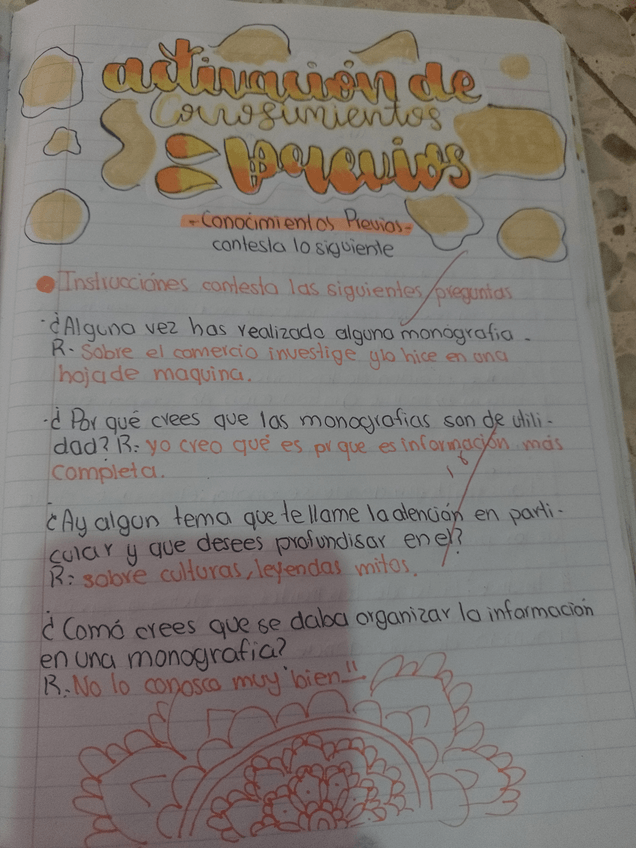 activación de
Conosimientos
previos
- Conocimientos Previos -
contesta lo siguiente
Instrucciónes contesta las siguientes preguntas
·¿Alguna vez has realizado alguna monografia.
R- Sobre el comercio investige y lo hice en una
hoja de maquina.
·¿Por qué crees que las monografias son de utili-
dad? R: yo creo qué es pr que es información más
completa.
¿Ay algun tema que te llame la atención en parti-
cular y que desees profundisar en el?
R: sobre culturas, leyendas mitos.
¿Comó crees que se daba organizar la información
en una monografia?
R. No lo conosco muy bien!!